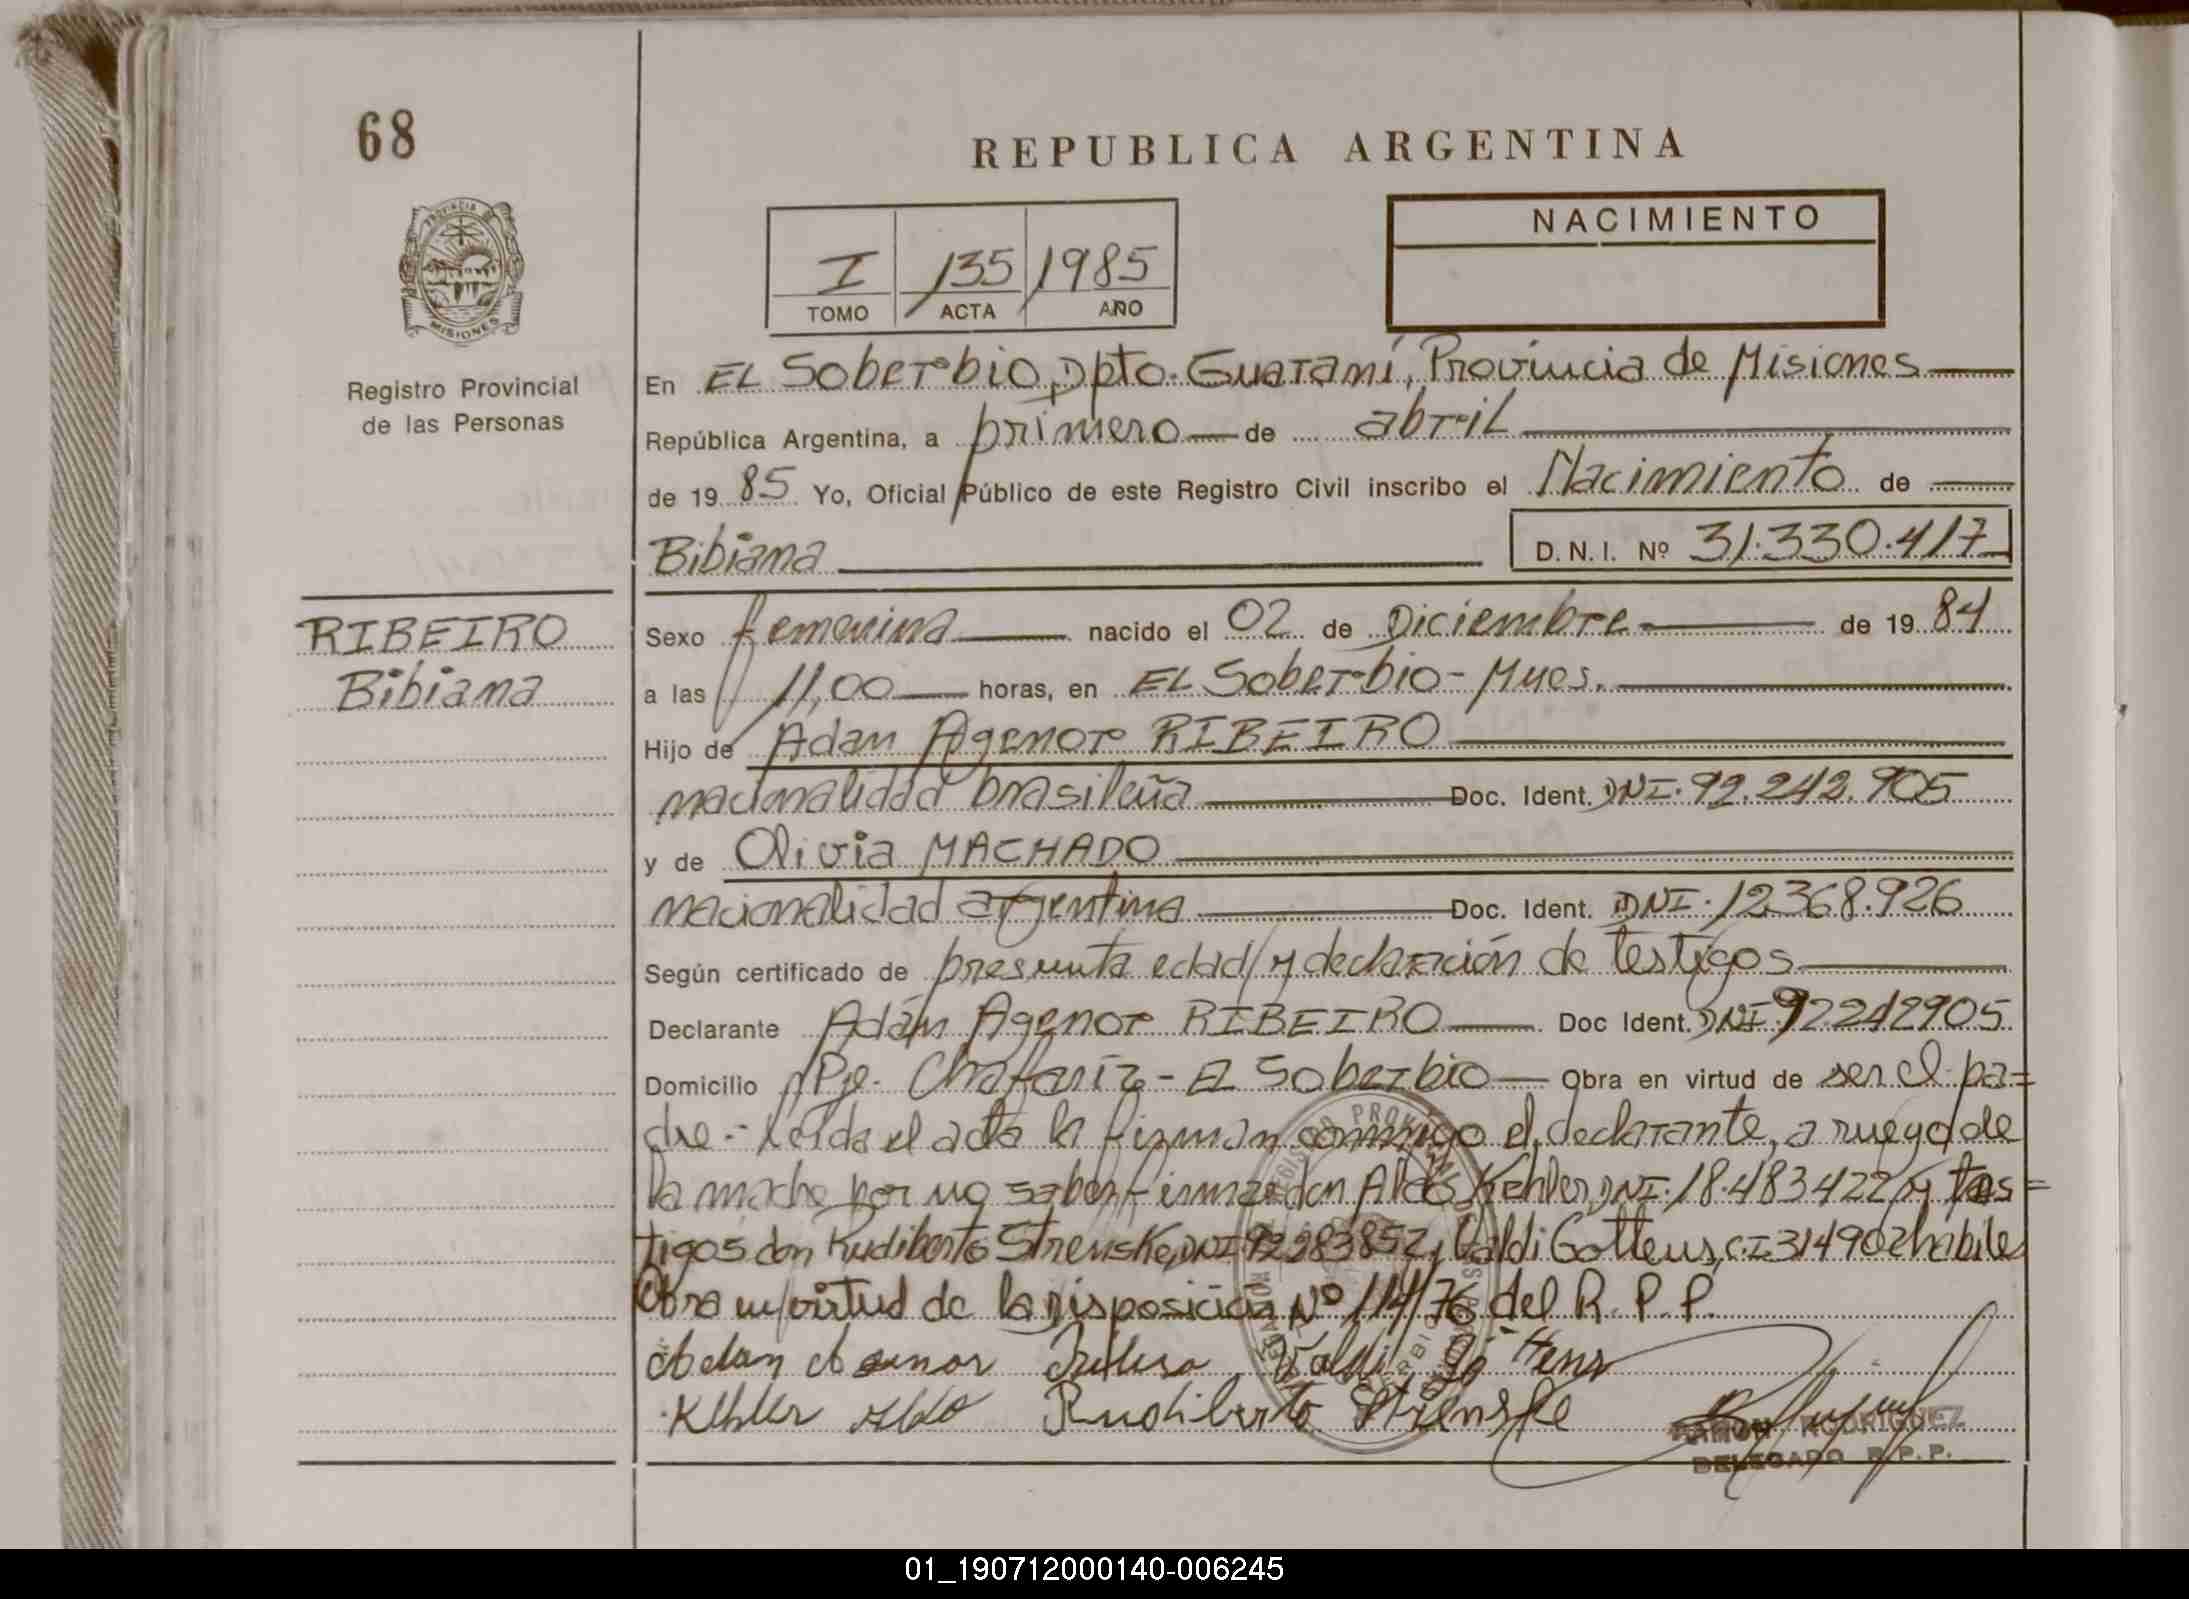 68
REPUBLICA ARGENTINA
NACIMIENTO
I 135 1985
TOMO ACTA AÑO
PROVINCIA DE
MISIONES
Registro Provincial
de las Personas
En EL Soberbio, Dpto. Guaraní, Provincia de Misiones
República Argentina, a primero de abril
de 1985 Yo, Oficial Público de este Registro Civil inscribo el Nacimiento de
Bibiana D.N.I. Nº 31.330.417
RIBEIRO
Bibiana
Sexo femenina nacido el 02 de Diciembre de 1984
a las 11,00 horas, en EL Soberbio - Mnes.
Hijo de Adan Agenor RIBEIRO
nacionalidad brasileña Doc. Ident. DNI. 92.242.905
y de Olivia MACHADO
nacionalidad argentina Doc. Ident. DNI. 12.368.926
Según certificado de presunta edad y declaración de testigos
Declarante Adán Agenor RIBEIRO Doc Ident. DNI 92242905
Domicilio Pje. Chafariz - El Soberbio Obra en virtud de ser el pa=
dre - leída el acta la firman conmigo el declarante, a ruego de
la madre por no saber firmar don Aldo Kehler DNI. 18.483422 y tes=
tigos don Rudiberto Strenske DNI 92283852 y Valdi Gottens, C.I. 314902 habiles
Obra en virtud de la Disposición Nº 114/76 del R.P.P.
Adan Valdi
Kehler Aldo Rudiberto Strenske
RAMON RODRIGUEZ
DELEGADO R.P.P.
01_190712000140-006245